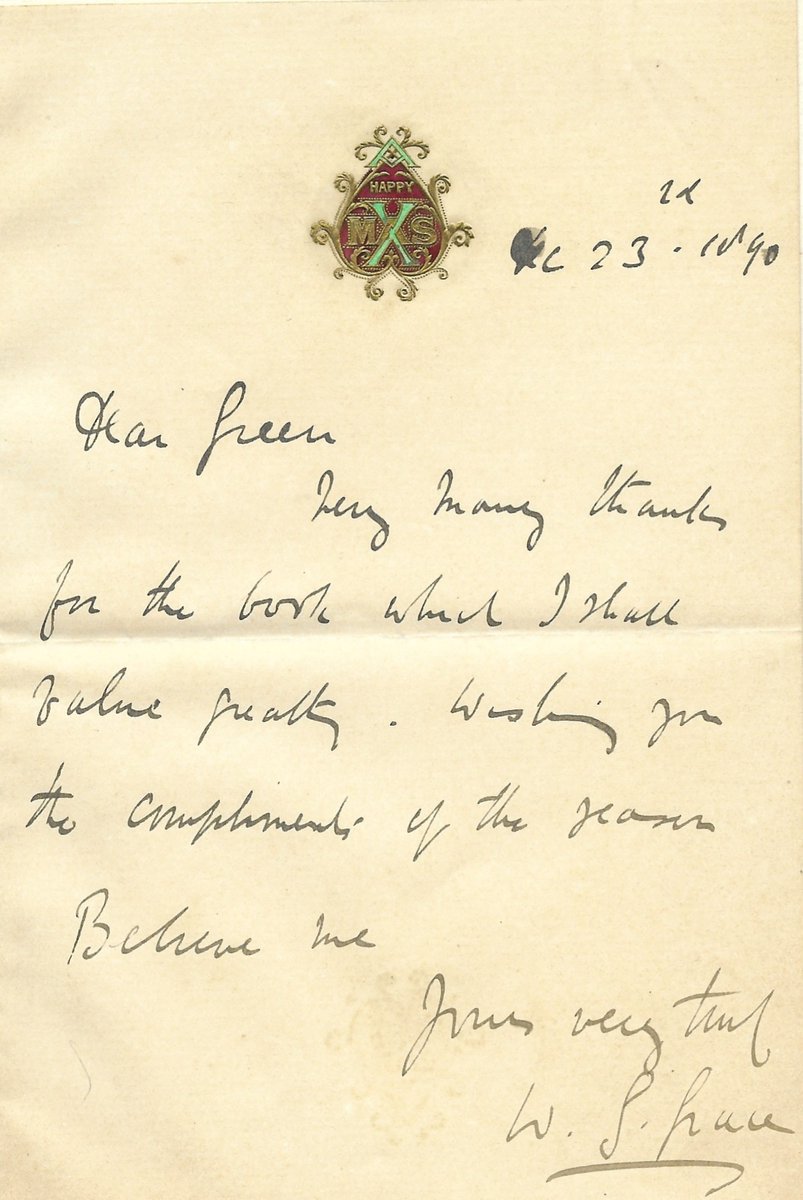 A
HAPPY
XMAS
Dec 23rd. 1890
Dear Green
Very many thanks
for the book which I shall
value greatly. Wishing you
the compliments of the season
Believe me
Yours very truly
W. G. Grace